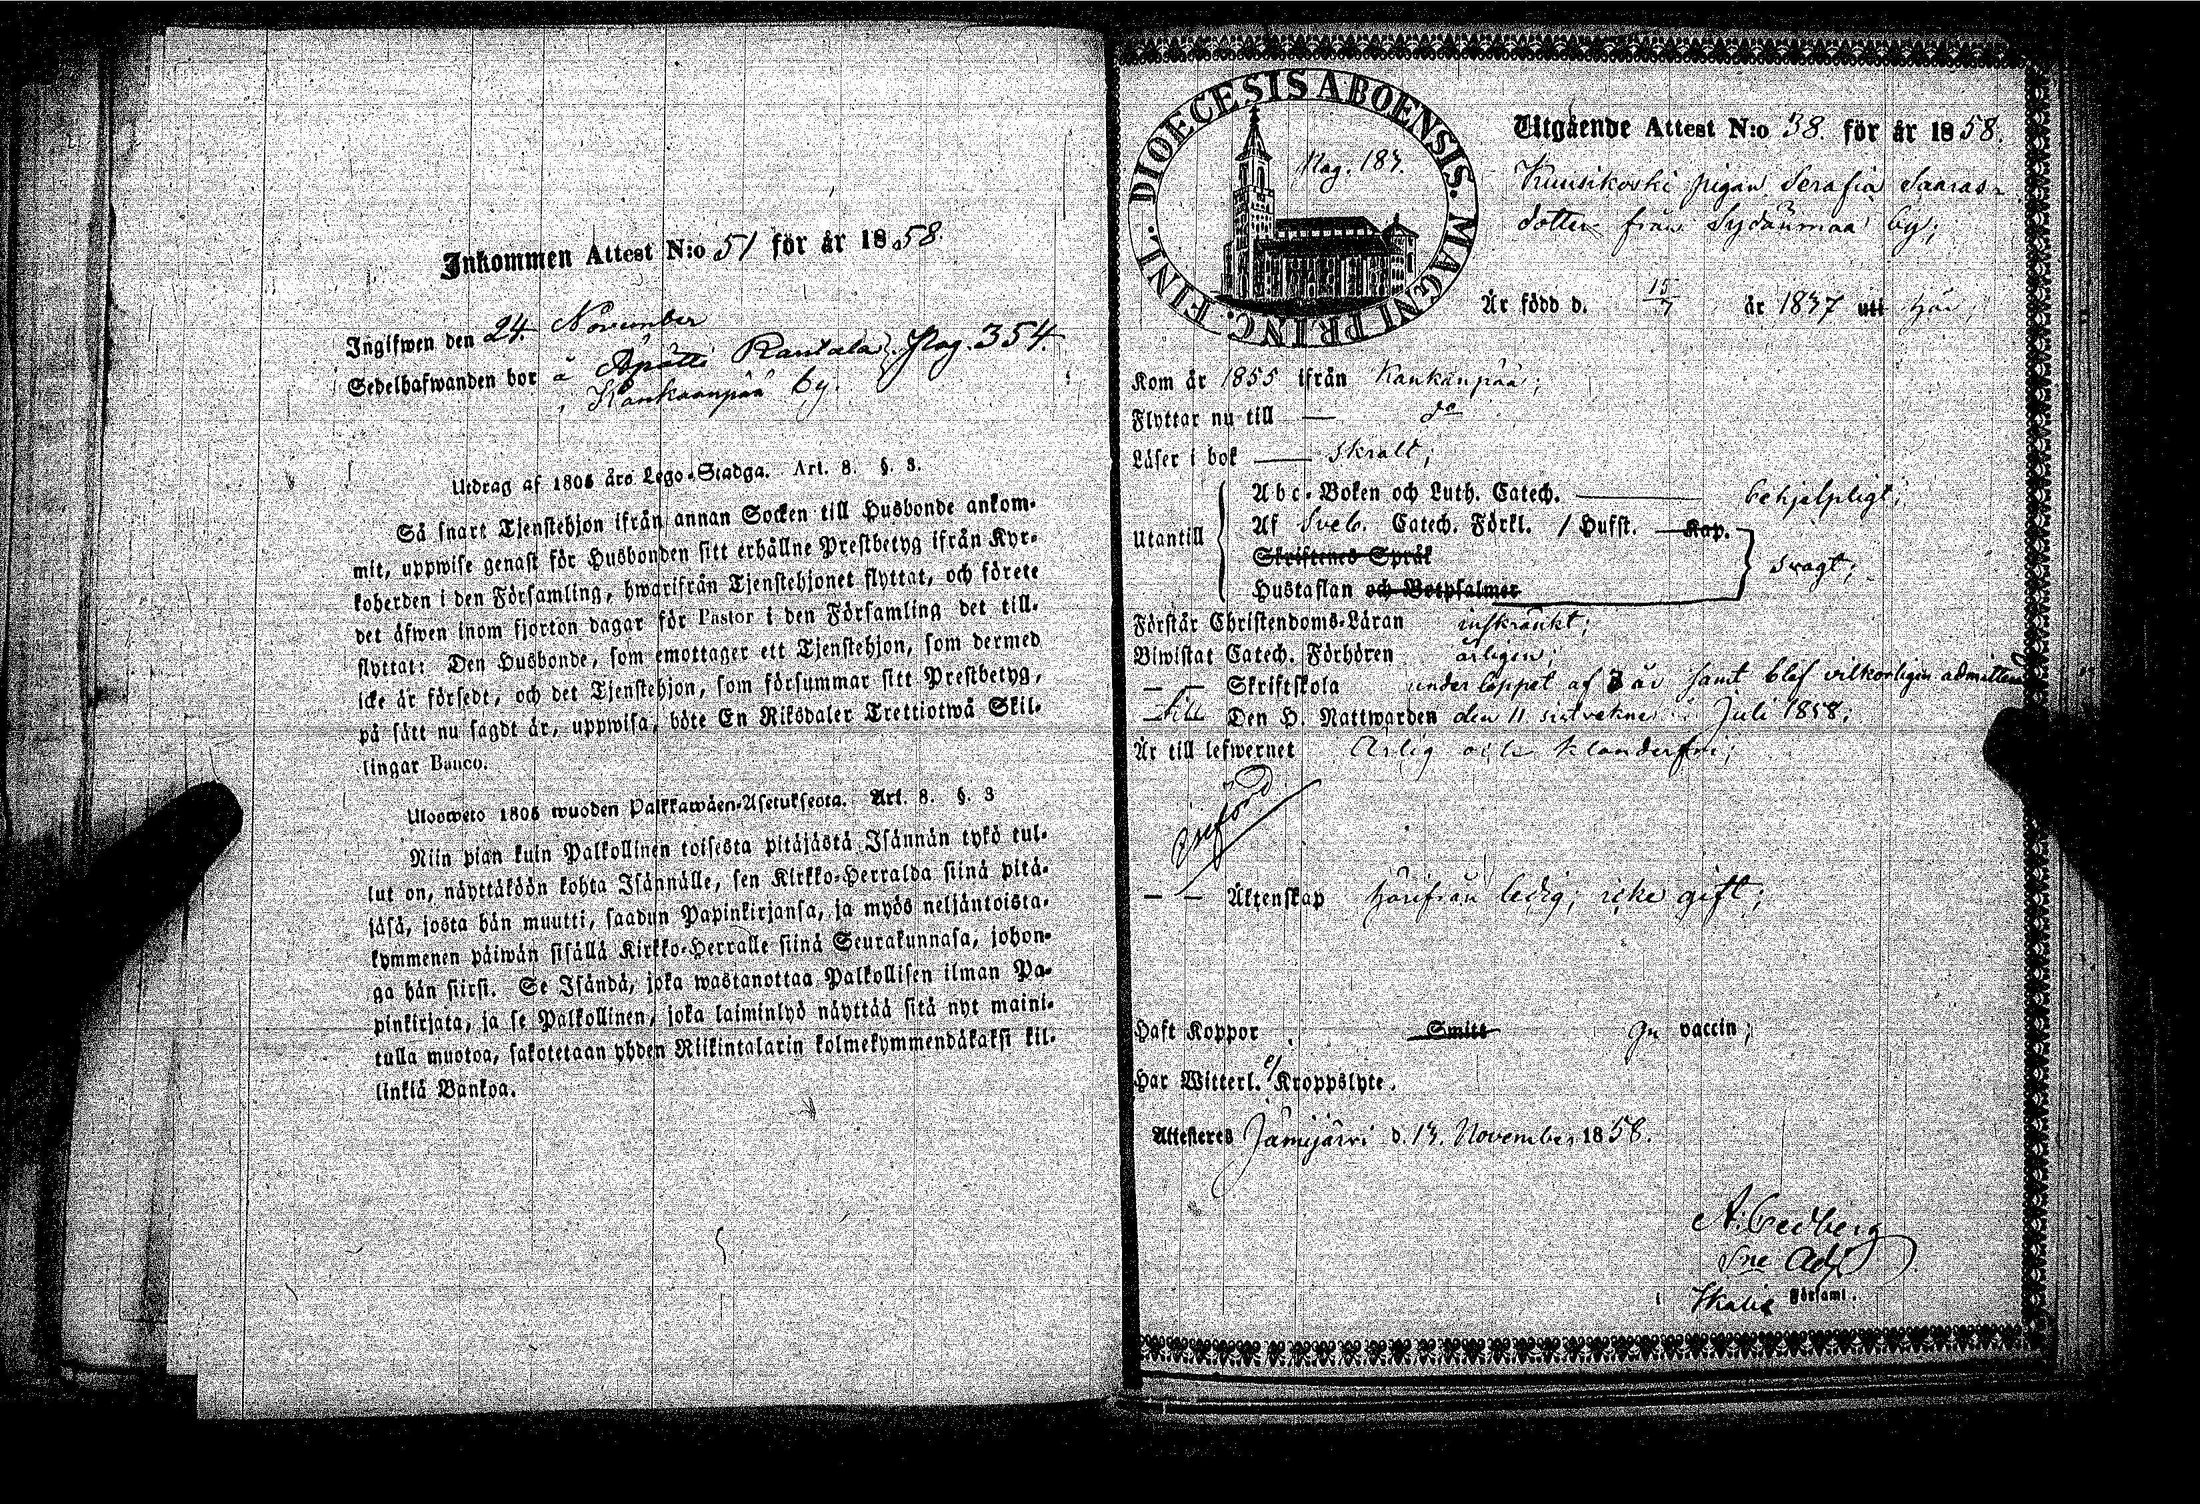 Inkommen Attest N:o 51 för år 1858.
Ingifwen den 24. November
Sedelhafwanden bor å Äpätti Rantala, Pag. 354.
Kankaanpää by.
Utdrag af 1805 års Lego-Stadga. Art. 8. §. 3.
Så snart Tjenstehjon ifrån annan Socken till Husbonde ankom-
mit, uppwise genast för Husbonden sitt erhållne Prestbetyg ifrån Kyr-
koherden i den Församling, hwarifrån Tjenstehjonet flyttat, och förete
det äfwen inom fjorton dagar för Pastor i den Församling det till-
flyttat: Den Husbonde, som emottager ett Tjenstehjon, som dermed
icke är försedt, och det Tjenstehjon, som försummar sitt Prestbetyg,
på sätt nu sagdt är, uppwisa, böte En Riksdaler Trettiotwå Skil-
lingar Banco.
Ulosweto 1805 wuoden Palkkawäen-Asetuksesta. Art. 8. §. 3
Niin pian kuin Palkollinen toisesta pitäjästä Isännän tykö tul-
lut on, näyttäköön kohta Isännälle, sen Kirkko-Herralda siinä pitä-
jäsä, josta hän muutti, saadun Papinkirjansa, ja myös neljäntoista-
kymmenen päiwän sisällä Kirkko-Herralle siinä Seurakunnasa, johon-
ga hän siirsi. Se Isändä, joka wastanottaa Palkollisen ilman Pa-
pinkirjata, ja se Palkollinen, joka laiminlyö näyttää sitä nyt maini-
tulla muotoa, sakotetaan yhden Riikintalarin kolmekymmendäkaksi kil-
linkiä Bankoa.
DIOECESIS ABOENSIS. MAGNI PRINC. FINL.
Pag. 187.
Utgående Attest N:o 38. för år 1858.
Kuusikoski pigan Serafia Saaras-
dotter från Sydänmaa by;
Är född d. 15/7 år 1837 uti här,
Kom år 1855 ifrån Kankanpää;
Flyttar nu till — do
Läser i bok — skralt;
Abc-Boken och Luth. Catech. — behjelpligt;
Utantill Af Sveb. Catech. Förkl. 1 Hufst. Kap.
Skriftenes Språk
svagt;
Hustaflan och Botpsalmer
Förstår Christendoms-Läran inskränkt;
Biwistat Catech. Förhören årligen;
— — Skriftskola under loppet af 3 år samt blef vilkorligen admitterad
— till Den H. Nattwarden den 11. Juli 1858;
Är till lefwernet Ärlig och klanderfri;
— — Äktenskap härifrån ledig; icke gift;
Haft Koppor Smitt vaccin;
Har Witterl. ej Kroppslyte.
Attesteres Jämijärvi d. 13. November 1858.
A. Cedberg
Sne Adj.
i Ikalis Församl.